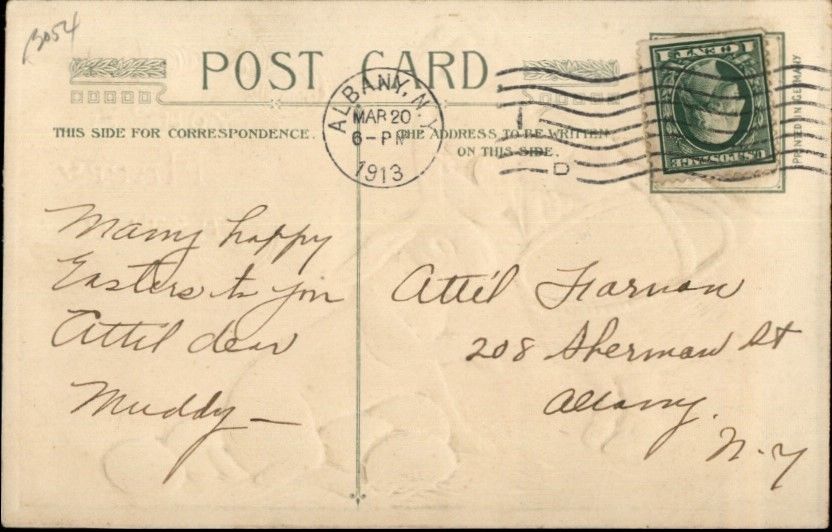 3054
POST CARD
ALBANY, N.Y.
MAR 20
6-PM
1913
D
1 CENT 1
U.S. POSTAGE
PRINTED IN GERMANY
THIS SIDE FOR CORRESPONDENCE.
THE ADDRESS TO BE WRITTEN
ON THIS SIDE.
Many happy
Easters to you
Attil dear
Muddy—
Attil Farnan
208 Sherman St
Albany.
N-Y